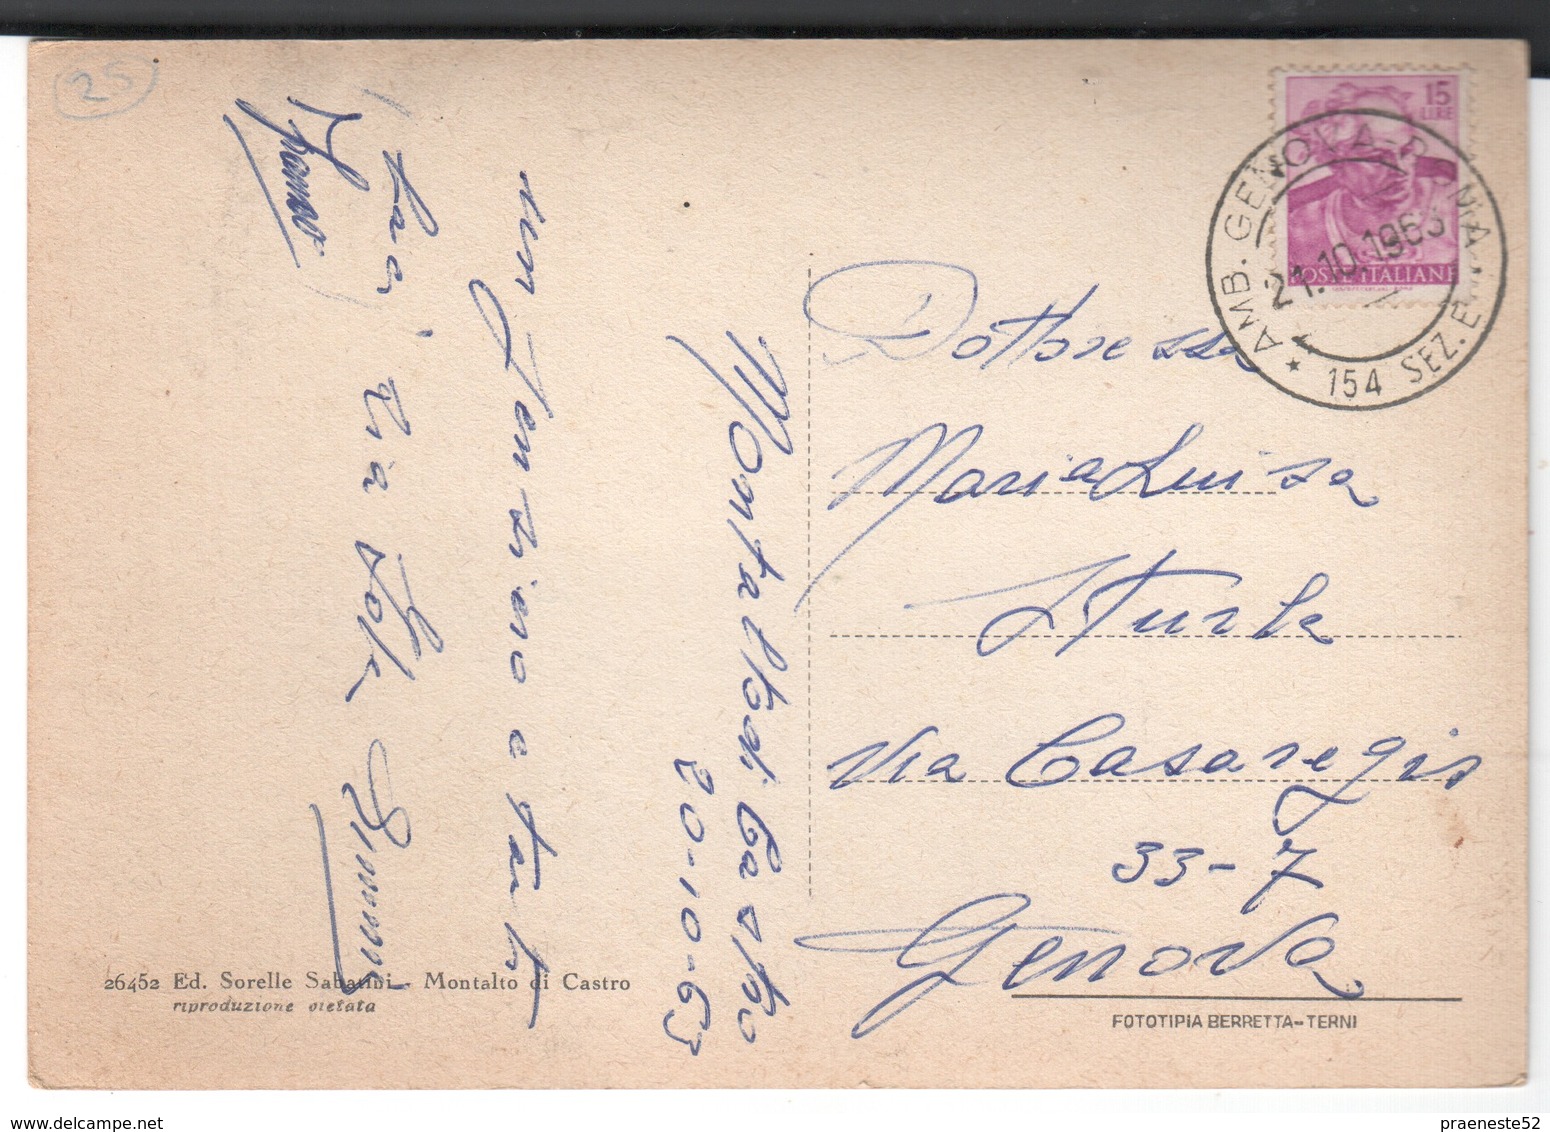 25
15
LIRE
POSTE ITALIANE
AMB. GENOVA-ROMA
21.10.1963
154 SEZ. E
Montalto di Castro
20-10-63
un pensiero e tanti
baci
zia
Dottoressa
Maria Luisa
Sturla
Via Casaregis
33-7
Genova
26452 Ed. Sorelle Sabatini - Montalto di Castro
riproduzione vietata
FOTOTIPIA BERRETTA-TERNI
www.delcampe.net
praeneste52